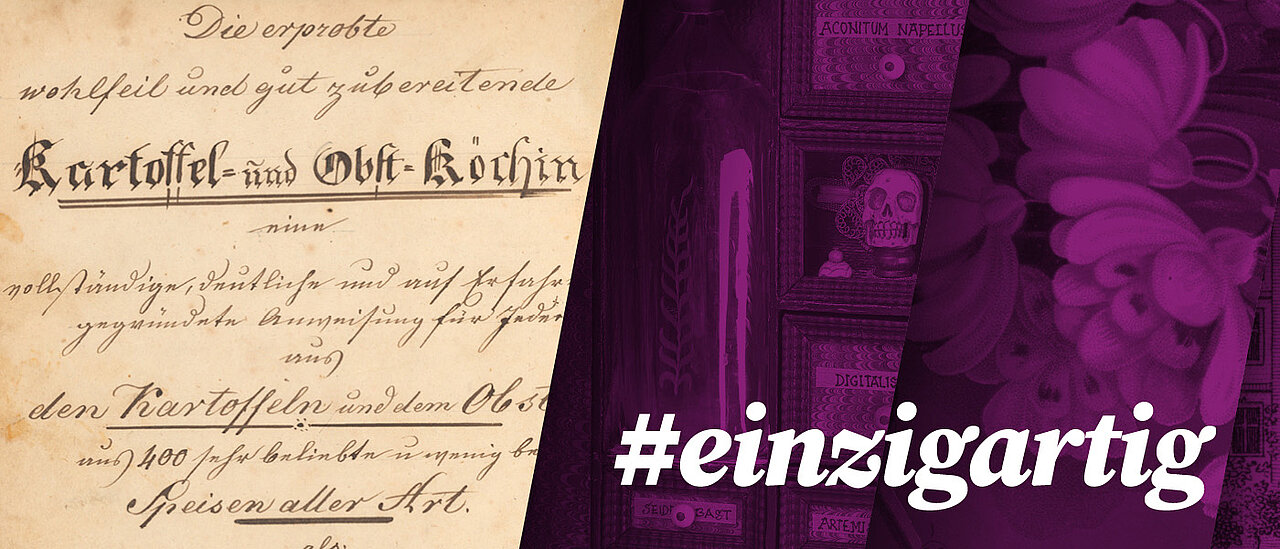 Die erprobte
wohlfeil und gut zubereitende
Kartoffel- und Obst-Köchin
eine
vollständige, deutliche und auf Erfahr-
gegründete Anweisung für Jeder
aus
den Kartoffeln und dem Obst
aus 400 sehr beliebte u wenig be
Speisen aller Art.
als:
ACONITUM NAPELLUS
DIGITALIS
SEIDELBAST
ARTEMI
#einzigartig